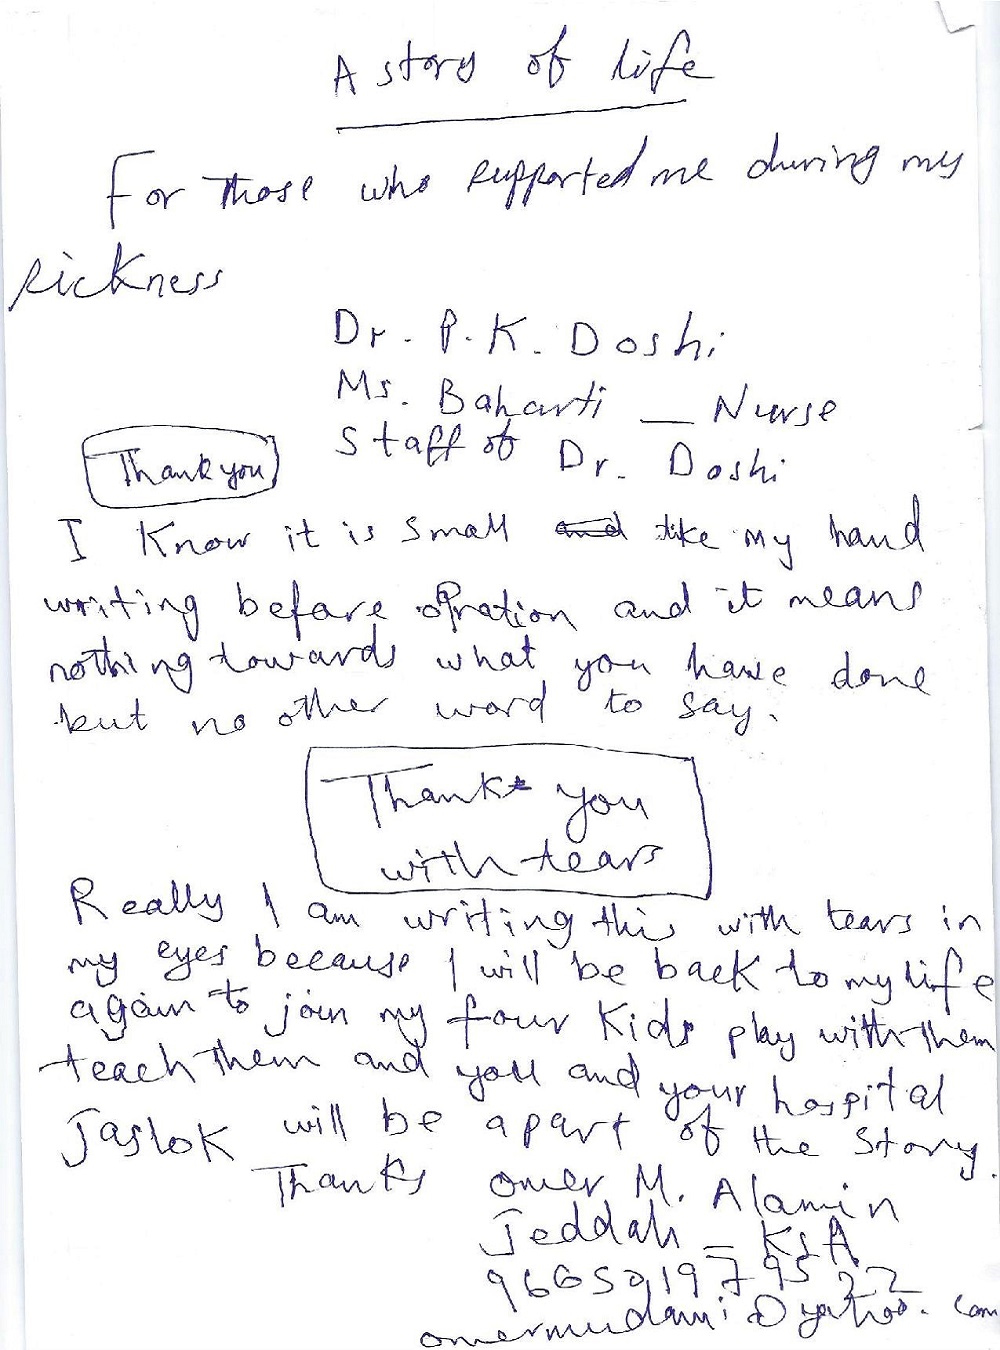 A story of life
For those who supported me during my
sickness
Dr. P.K. Doshi
Ms. Baharti _ Nurse
Staff of Dr. Doshi
Thank you
I know it is small and like my hand
writing before opration and it means
nothing towards what you have done
but no other word to say.
Thank you
with tears
Really I am writing this with tears in
my eyes because I will be back to my life
again to join my four kids play with them
teach them and you and your hospital
Jaslok will be apart of the story.
Thanks Omer M. Alamin
Jeddah _ KSA